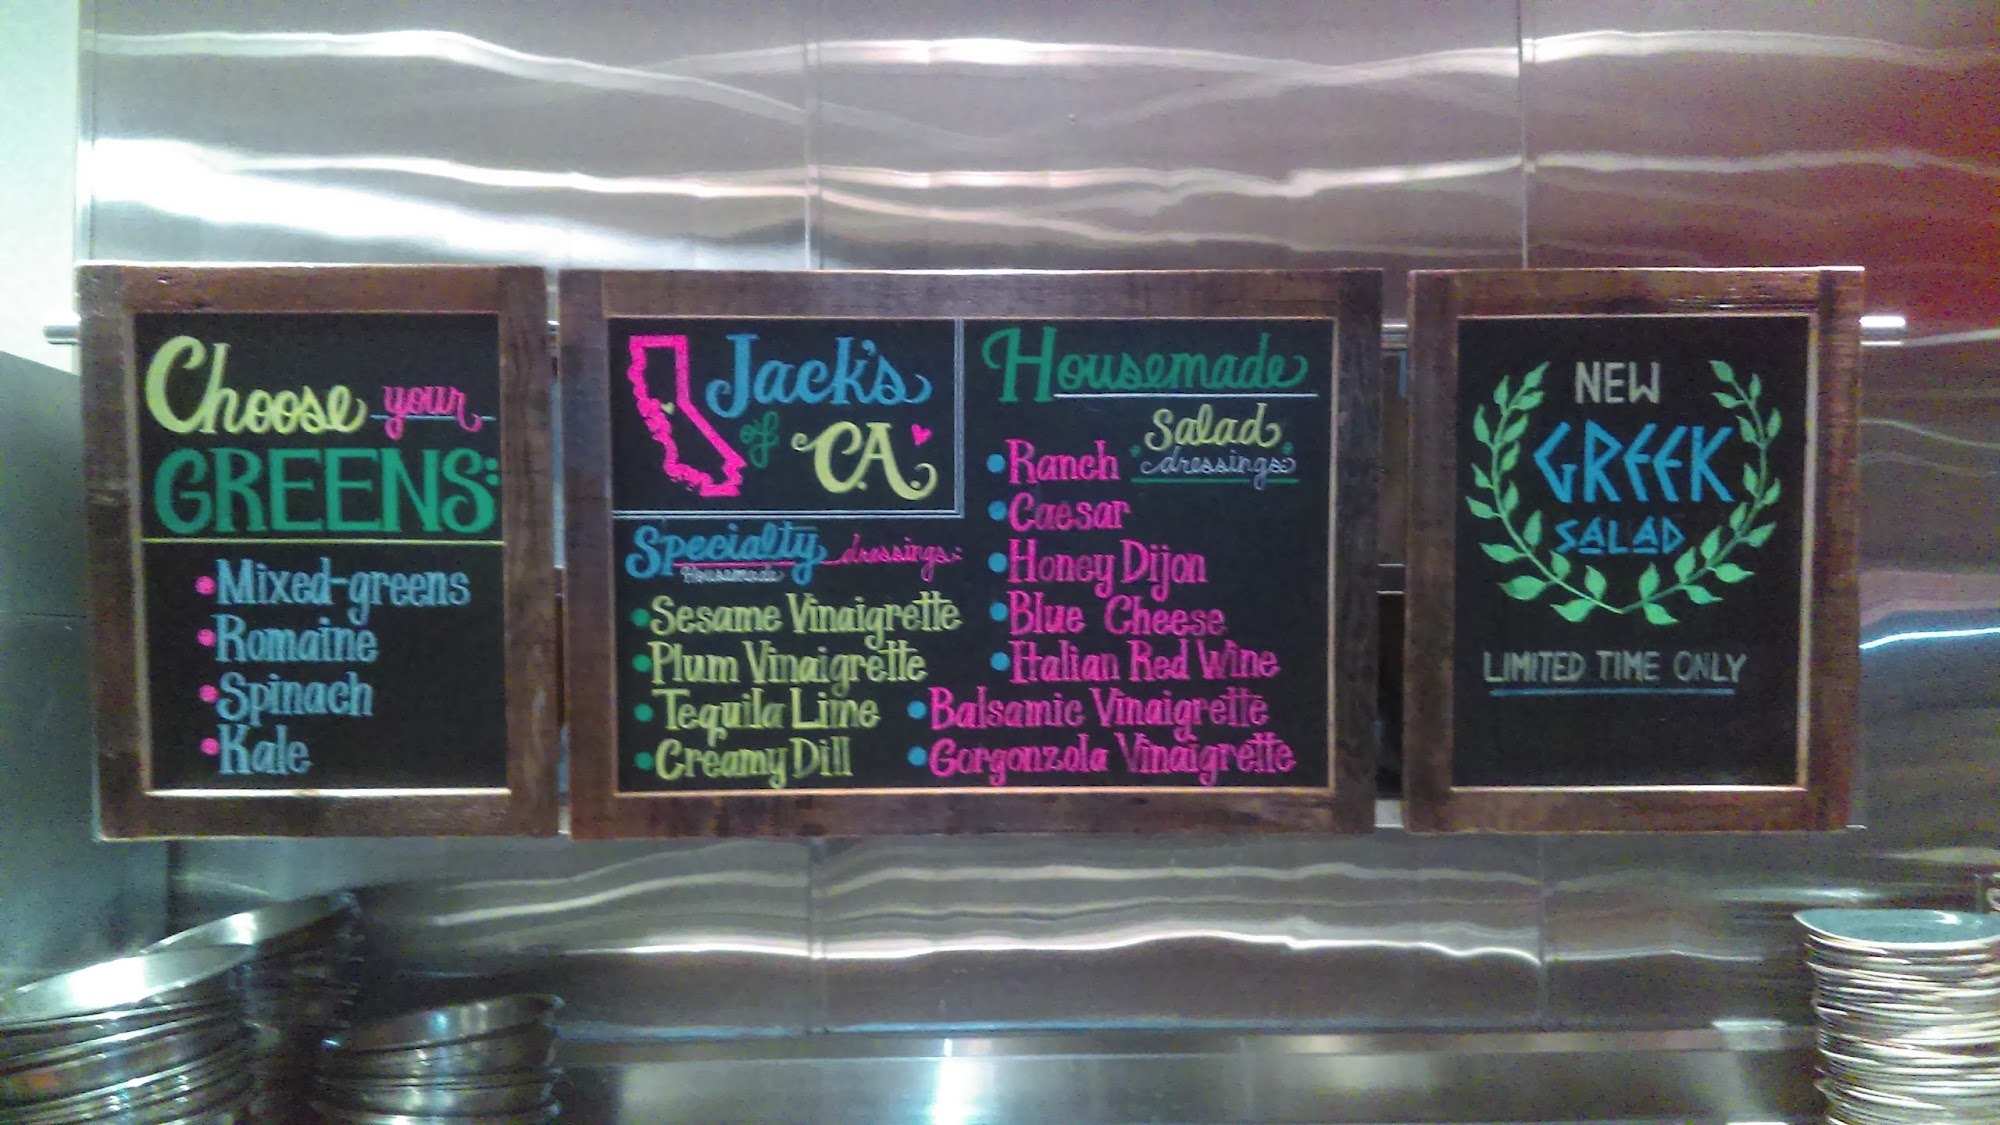 Choose your
GREENS:
Mixed-greens
Romaine
Spinach
Kale
Jack's
of CA
Specialty dressings:
Housemade
Sesame Vinaigrette
Plum Vinaigrette
Tequila Lime
Creamy Dill
Housemade
Salad
dressings
Ranch
Caesar
Honey Dijon
Blue Cheese
Italian Red Wine
Balsamic Vinaigrette
Gorgonzola Vinaigrette
NEW
GREEK
SALAD
LIMITED TIME ONLY